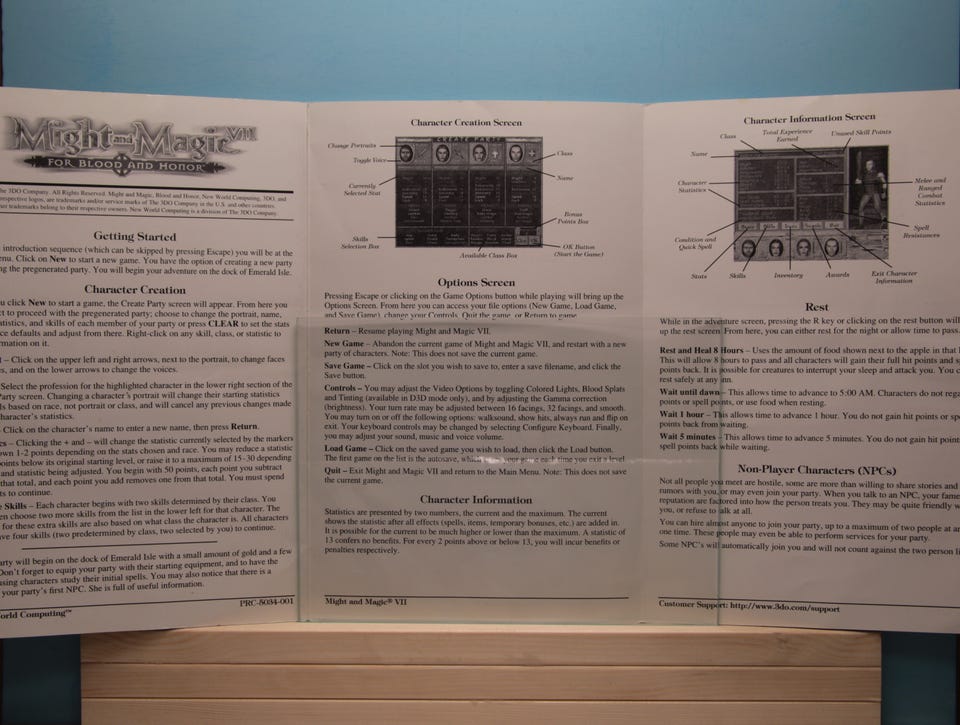 Might and Magic VII
FOR BLOOD AND HONOR
The 3DO Company. All Rights Reserved. Might and Magic, Blood and Honor, New World Computing, 3DO, and
respective logos, are trademarks and/or service marks of The 3DO Company in the U.S. and other countries.
trademarks belong to their respective owners. New World Computing is a division of The 3DO Company.
Getting Started
introduction sequence (which can be skipped by pressing Escape) you will be at the
Click on New to start a new game. You have the option of creating a new party
the pregenerated party. You will begin your adventure on the dock of Emerald Isle.
Character Creation
click New to start a game, the Create Party screen will appear. From here you
to proceed with the pregenerated party; choose to change the portrait, name,
and skills of each member of your party or press CLEAR to set the stats
defaults and adjust from there. Right-click on any skill, class, or statistic to
on it.
– Click on the upper left and right arrows, next to the portrait, to change faces
and on the lower arrows to change the voices.
Select the profession for the highlighted character in the lower right section of the
Party screen. Changing a character's portrait will change their starting statistics
based on race, not portrait or class, and will cancel any previous changes made
character's statistics.
– Click on the character's name to enter a new name, then press Return.
– Clicking the + and – will change the statistic currently selected by the markers
1-2 points depending on the stats chosen and race. You may reduce a statistic
points below its original starting level, or raise it to a maximum of 15-30 depending
and statistic being adjusted. You begin with 50 points, each point you subtract
that total, and each point you add removes one from that total. You must spend
to continue.
Skills – Each character begins with two skills determined by their class. You
choose two more skills from the list in the lower left for that character. The
for these extra skills are also based on what class the character is. All characters
four skills (two predetermined by class, two selected by you) to continue.
will begin on the dock of Emerald Isle with a small amount of gold and a few
Don't forget to equip your party with their starting equipment, and to have the
using characters study their initial spells. You may also notice that there is a
your party's first NPC. She is full of useful information.
World Computing™
PRC-8034-001
Character Creation Screen
CREATE PARTY
Change Portraits
Toggle Voice
Currently
Selected Stat
Skills
Selection Box
Class
Name
Bonus
Points Box
OK Button
(Start the Game)
Available Class Box
Options Screen
Pressing Escape or clicking on the Game Options button while playing will bring up the
Options Screen. From here you can access your file options (New Game, Load Game,
and Save Game), change your Controls, Quit the game, or Return to game.
Return – Resume playing Might and Magic VII.
New Game – Abandon the current game of Might and Magic VII, and restart with a new
party of characters. Note: This does not save the current game.
Save Game – Click on the slot you wish to save to, enter a save filename, and click the
Save button.
Controls – You may adjust the Video Options by toggling Colored Lights, Blood Splats
and Tinting (available in D3D mode only), and by adjusting the Gamma correction
(brightness). Your turn rate may be adjusted between 16 facings, 32 facings, and smooth.
You may turn on or off the following options: walksound, show hits, always run and flip on
exit. Your keyboard controls may be changed by selecting Configure Keyboard. Finally,
you may adjust your sound, music and voice volume.
Load Game – Click on the saved game you wish to load, then click the Load button.
The first game on the list is the autosave, which saves your game each time you exit a level
Quit – Exit Might and Magic VII and return to the Main Menu. Note: This does not save
the current game.
Character Information
Statistics are presented by two numbers, the current and the maximum. The current
shows the statistic after all effects (spells, items, temporary bonuses, etc.) are added in.
It is possible for the current to be much higher or lower than the maximum. A statistic of
13 confers no benefits. For every 2 points above or below 13, you will incur benefits or
penalties respectively.
Might and Magic® VII
Character Information Screen
Class
Total Experience
Earned
Unused Skill Points
Name
Character
Statistics
Condition and
Quick Spell
Melee and
Ranged
Combat
Statistics
Spell
Resistances
Stats
Skills
Inventory
Awards
Exit Character
Information
Rest
While in the adventure screen, pressing the R key or clicking on the rest button will
up the rest screen. From here, you can either rest for the night or allow time to pass.
Rest and Heal 8 Hours – Uses the amount of food shown next to the apple in that
This will allow 8 hours to pass and all characters will gain their full hit points and
points back. It is possible for creatures to interrupt your sleep and attack you. You
rest safely at any inn.
Wait until dawn – This allows time to advance to 5:00 AM. Characters do not
points or spell points, or use food when resting.
Wait 1 hour – This allows time to advance 1 hour. You do not gain hit points or
points back from waiting.
Wait 5 minutes – This allows time to advance 5 minutes. You do not gain hit points
spell points back while waiting.
Non-Player Characters (NPCs)
Not all people you meet are hostile, some are more than willing to share stories and
rumors with you, or may even join your party. When you talk to an NPC, your fame
reputation are factored into how the person treats you. They may be quite friendly
you, or refuse to talk at all.
You can hire almost anyone to join your party, up to a maximum of two people at
one time. These people may even be able to perform services for your party.
Some NPC's will automatically join you and will not count against the two person
Customer Support: http://www.3do.com/support